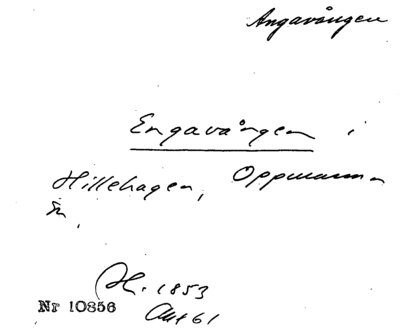 Angavången
Engavången i
Hillehagen, Oppmanna
sn.
Sk. 1853
Akt 61
Nr 10856